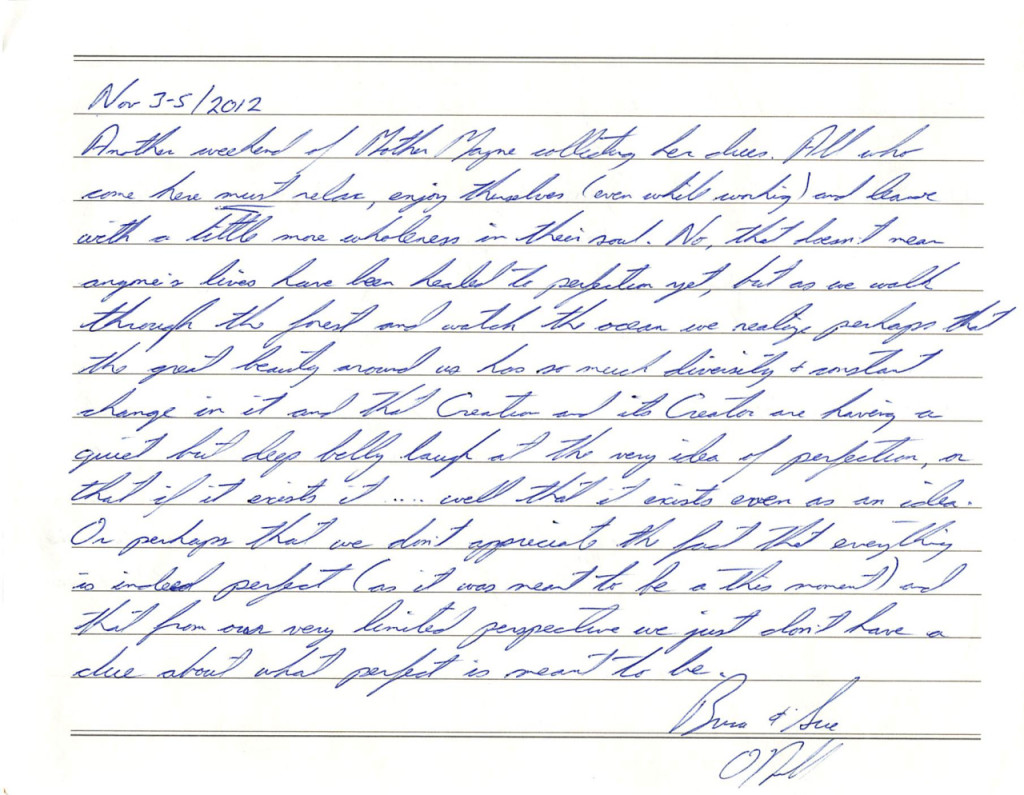 Nov 3-5/2012
Another weekend of Mother Mayne collecting her dues. All who
come here must relax, enjoy themselves (even while working) and leave
with a little more wholeness in their soul. No, that doesn't mean
anyone's lives have been healed to perfection yet, but as we walk
through the forest and watch the ocean we realize perhaps that
the great beauty around us has so much diversity & constant
change in it and that Creation and its Creator are having a
quiet but deep belly laugh at the very idea of perfection, or
that if it exists it ..... well that it exists even as an idea.
Or perhaps that we don't appreciate the fact that everything
is indeed perfect (as it was meant to be a this moment) and
that from our very limited perspective we just don't have a
clue about what perfect is meant to be.
& Sue